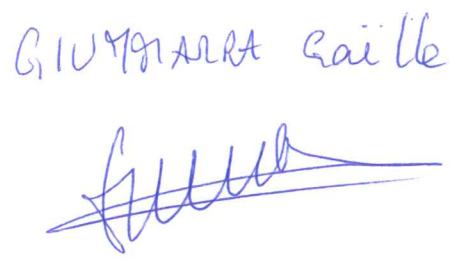 GIUMMARRA Gaëlle